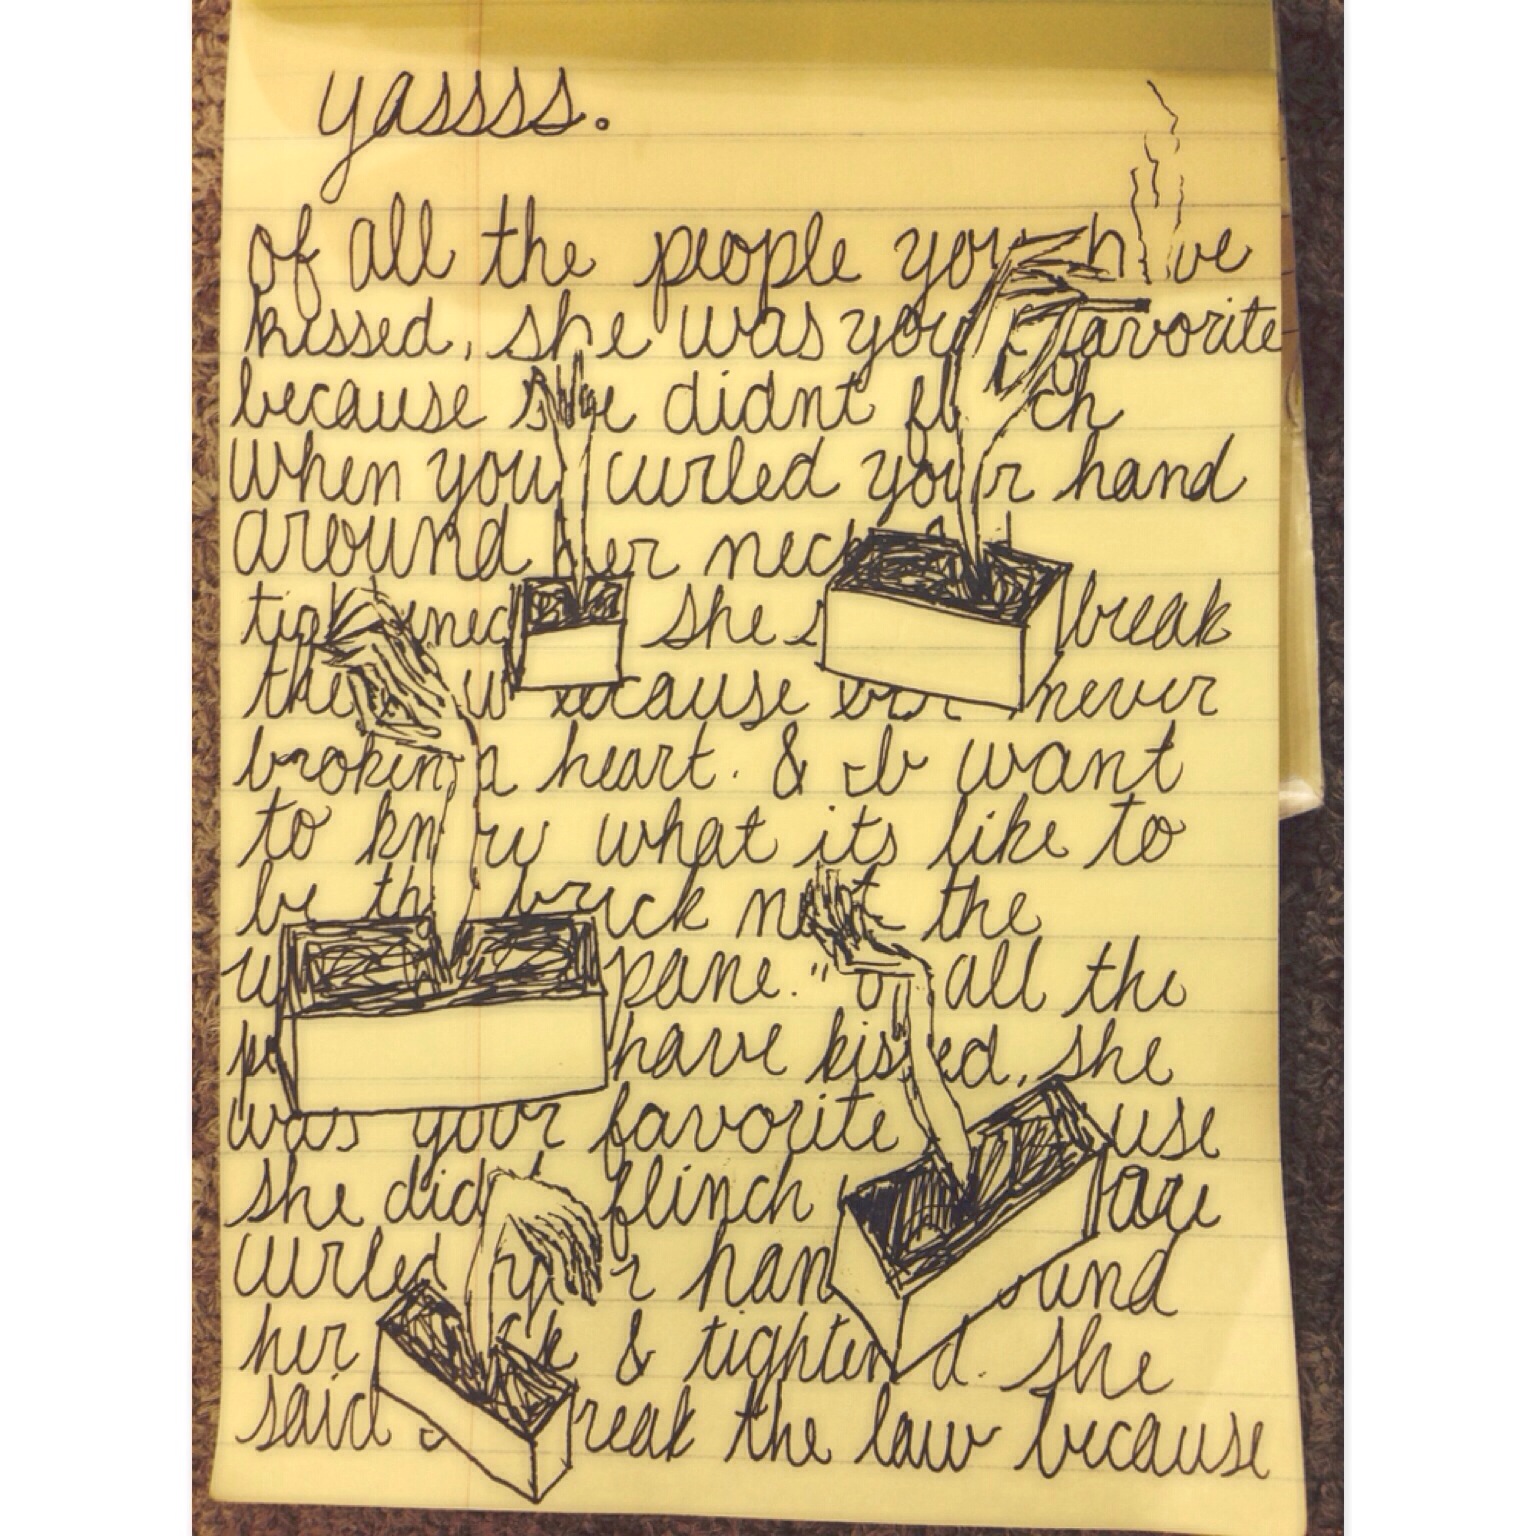 yassss.
of all the people you have
kissed, she was your favorite
because she didnt flinch
when you curled your hand
around her neck and
tightened she s break
the law because ever never
broken a heart. & I want
to know what its like to
be the brick not the
pane." of all the
have kissed, she
was your favorite because
she didnt flinch
curled your hand around
her neck & tightened. She
said I break the law because